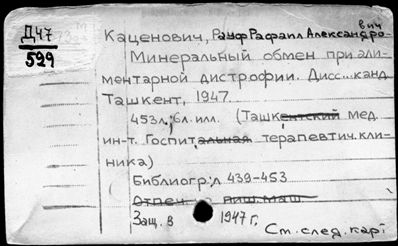 Д47
599
Каценович, Рауф Рафаил Александрович
Минеральный обмен при али-
ментарной дистрофии. Дисс...канд.
Ташкент, 1947.
453л.; 6л. илл. (Ташкентский мед.
ин-т. Госпитальная терапевтич. кли-
ника)
Библиогр: л 439-453
Отпеч. на пиш. маш.
Защ. в 1947 г.
См. след. карт